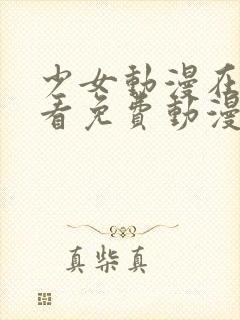 少女動漫在
看免費動漫
真柴真